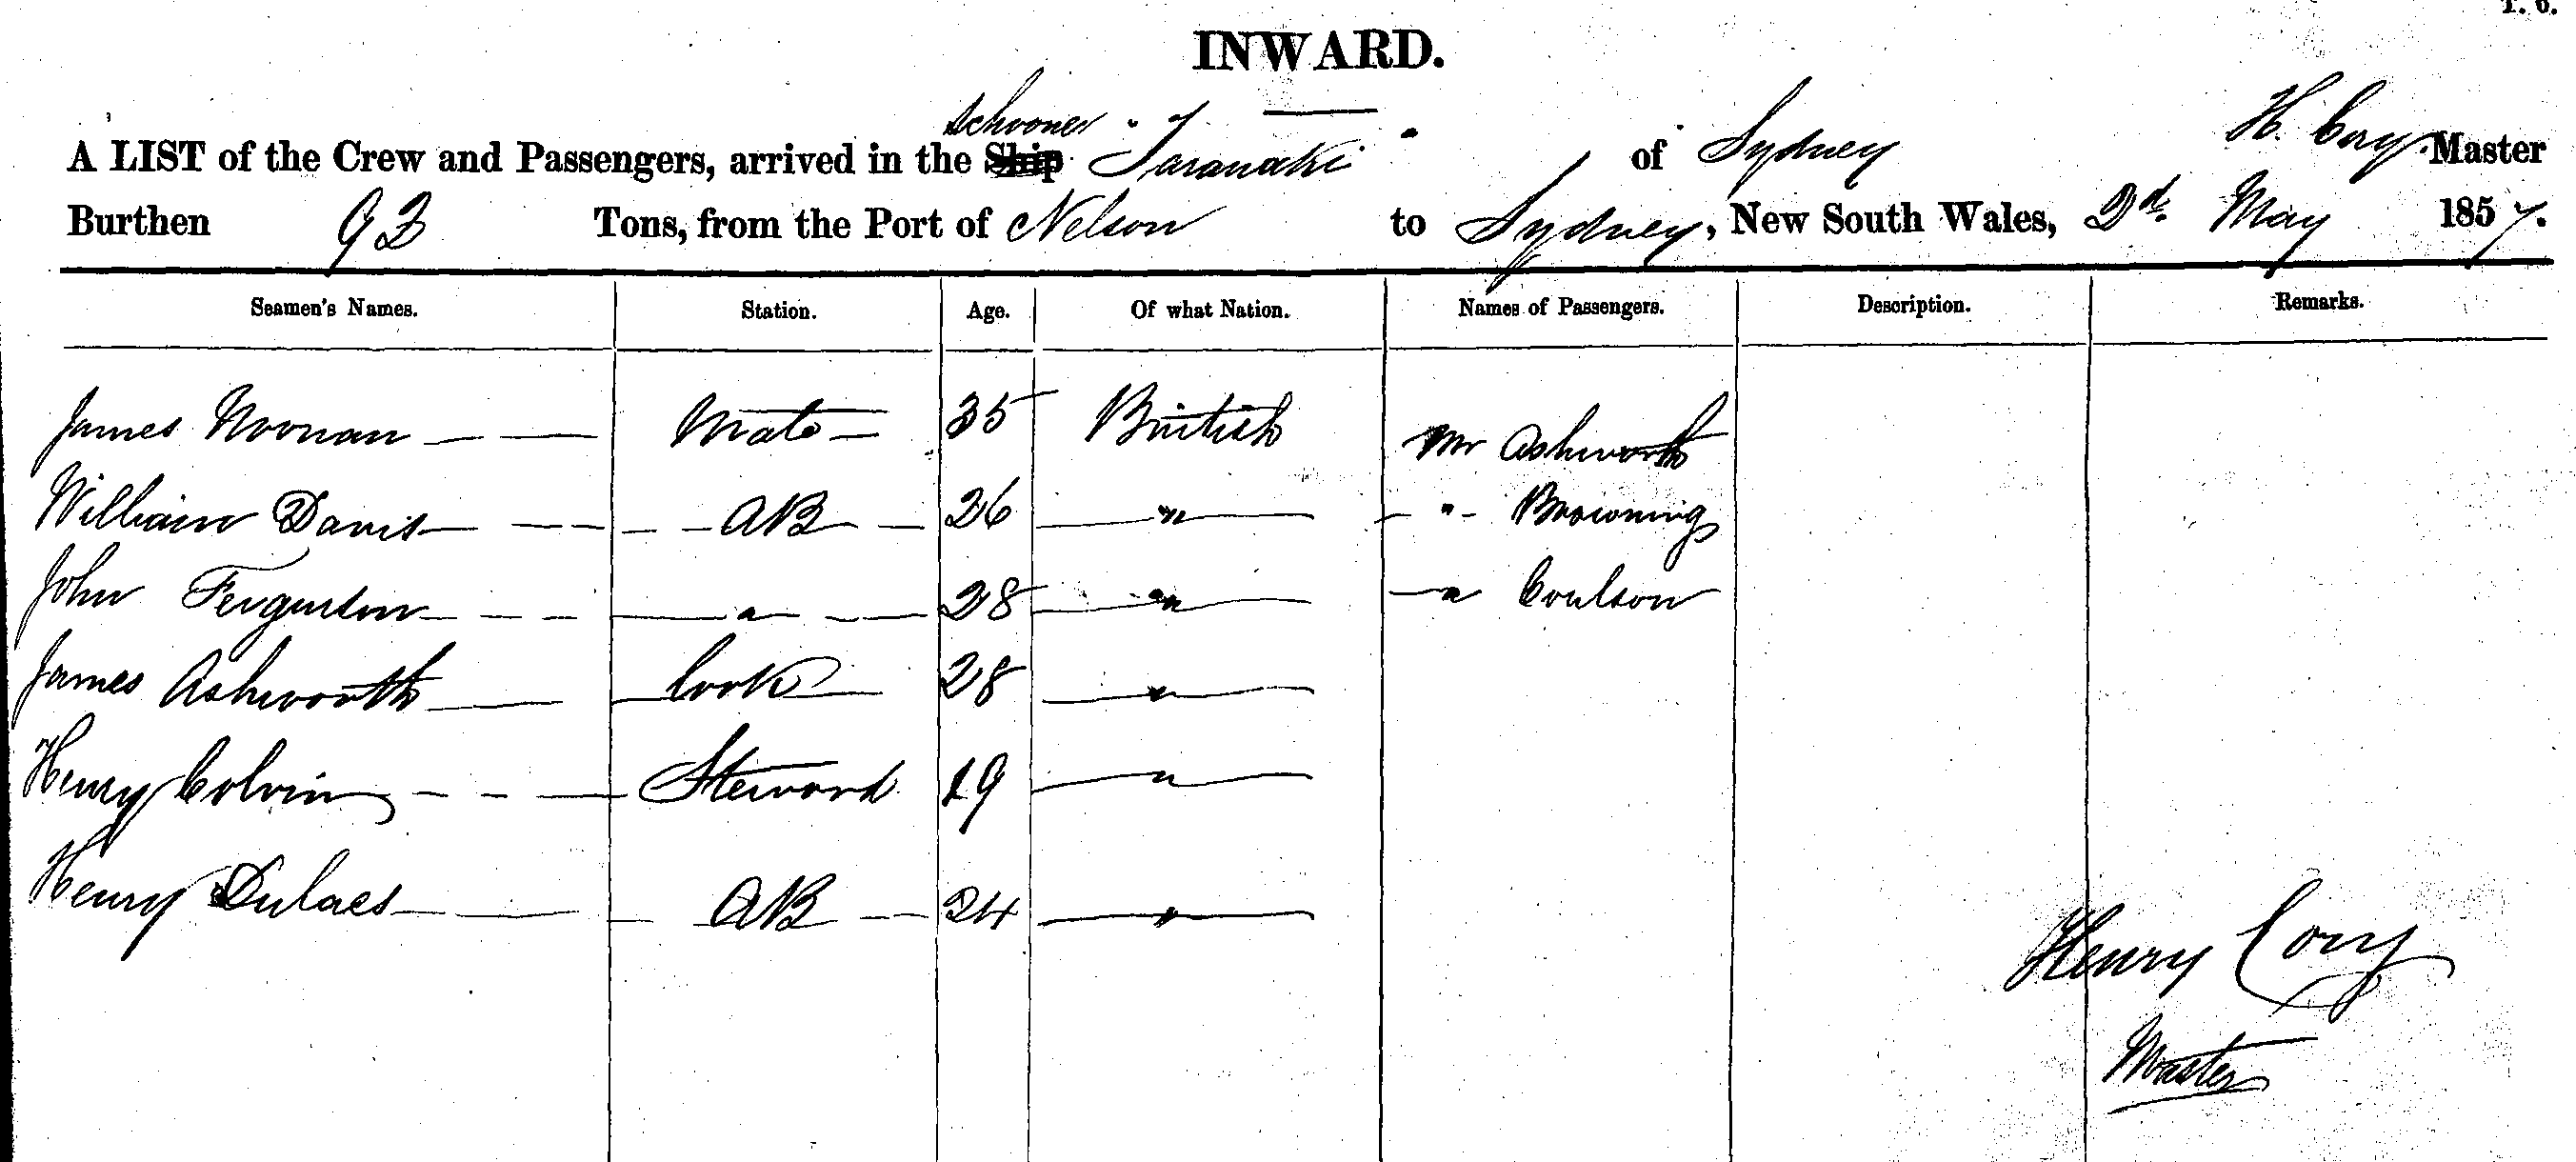 T. 6.
INWARD.
A LIST of the Crew and Passengers, arrived in the Ship Schooner "Taranaki" of Sydney H. Cory Master
Burthen 93 Tons, from the Port of Nelson to Sydney, New South Wales, 2d. May 1857.
Seamen's Names. Station. Age. Of what Nation. Names of Passengers. Description. Remarks.
James Noonan — — Mate — 35 British Mr Ashworth
William Davis — — — — AB — — 26 — " — — " — Browning
John Ferguson — — — — " — — — 28 — " — — " Coulson
James Ashworth — — — Cook — 28 — " —
Henry Colvin — — — Steward 19 — " —
Henry — — — AB — 24 — " —
Henry Cory
Master